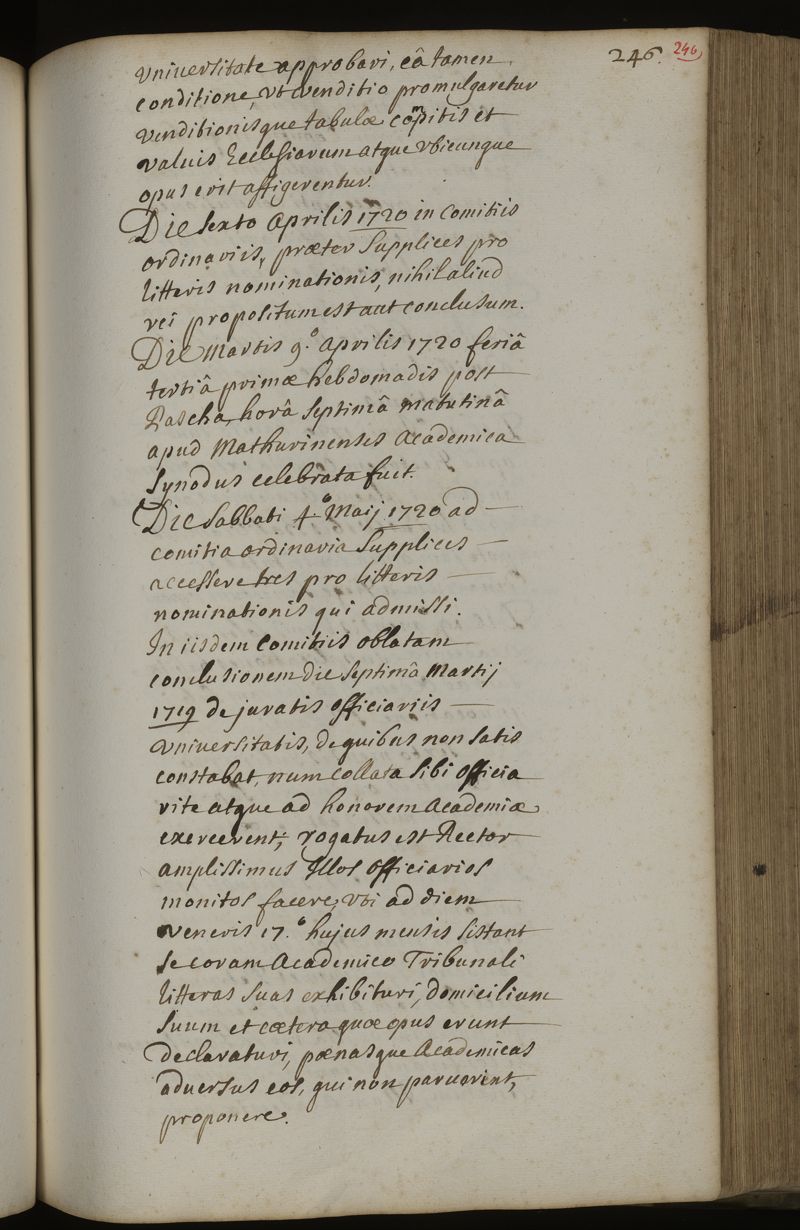 246. 246
vniuersitate approbari, eâ tamen
conditione, vt venditio promulgaretur
venditionisque tabulæ compitis et
valuis Ecclesiarum atque vbicunque
opus erit affigerentur.
Die sexto Aprilis 1720 in Comitiis
ordinariis, præter Supplices pro
litteris nominationis, nihil aliud
rei propositum est aut conclusum.
Die Martis 9.º Aprilis 1720 feriâ
tertiâ primæ hebdomadis post
Pascha, horâ septimâ matutinâ
apud Mathurinenses Academica
Synodus celebrata fuit.
Die Sabbati 4.º Maij 1720 ad
comitia ordinaria Supplices
accessere tres pro litteris
nominationis qui admissi.
In iisdem Comitiis oblatam
conclusionem die septimâ Martij
1719 de juratis officiariis
vniuersitatis, de quibus non satis
constabat, num collata sibi officia
rite atque ad honorem Academiæ
exercerent; rogatus est Rector
amplissimus Illos officiarios
monitos facere, vti ad diem
veneris 17.º hujus mensis sistant
se coram Academico Tribunali
litteras suas exhibituri, domicilium
suum et cætera quæ opus erunt
declaraturi, pænasque Academicas
aduersus eos, qui non paruerint,
proponere.